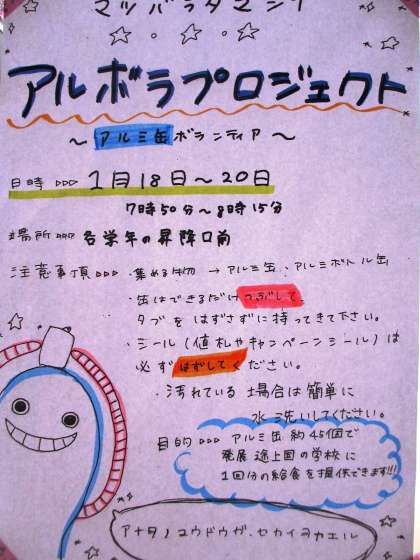 マツバラダマシイ
アルボラプロジェクト
〜アルミ缶ボランティア〜
日時 ▷▷▷ 1月18日〜20日
7時50分〜8時15分
場所 ▷▷▷ 各学年の昇降口前
注意事項 ▷▷▷ ・集める物 → アルミ缶、アルミボトル缶
・缶はできるだけつぶして、
タブをはずさずに持ってきて下さい。
・シール(値札やキャンペーンシール)は
必ずはがしてください。
・汚れている場合は簡単に
水洗いしてください。
目的 ▷▷▷ アルミ缶約45個で
発展途上国の学校に
1回分の給食を提供できます!!!
アナタノユウドウガ、セカイヲカエル